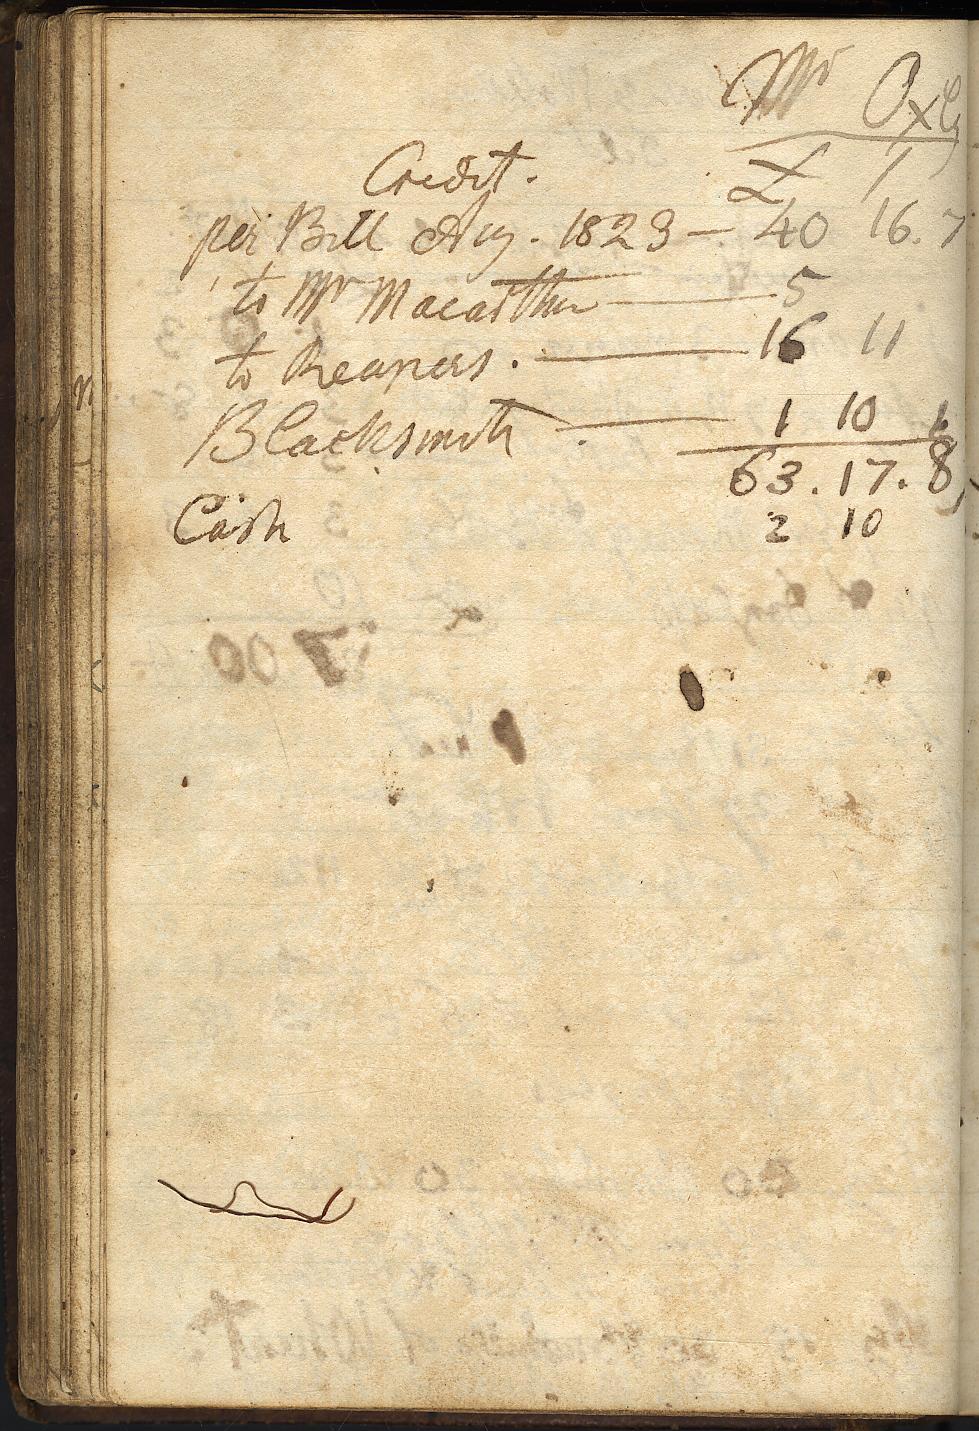 Mr Oxly
Credit. £ /
per Bill Aug. 1823 — 40 16. 7
to Mr Macarthur — 5
to Reapers. — 16 11
Blacksmith — 1 10 1
63. 17. 8
Cash 2 10